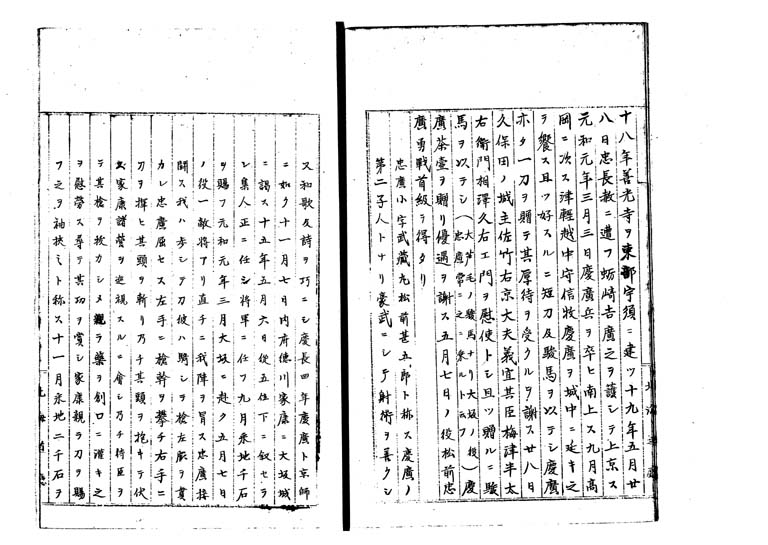 十八年善光寺ヲ東部宇須ニ建ツ十九年五月廿
八日忠長教ニ遭フ蛎崎吉廣之ヲ護シテ上京ス
元和元年三月三日慶廣兵ヲ卒ヒ南上ス九月高
岡ニ次ス津軽越中守信牧慶廣ヲ城中ニ延キ之
ヲ饗ス且ツ好スルニ短刀及駿馬ヲ以テシ慶廣
亦タ一刀ヲ贈テ其厚待ヲ受クルヲ謝ス廿八日
久保田ノ城主佐竹右京大夫義宜其臣梅津半太
右衛門相澤久右エ門ヲ慰使トシ且ツ贈ルニ駿
馬ヲ以テシ(大芦毛ノ駿馬ナリ大坂ノ役忠慶常ニ之ニ乗ルト云フ)慶
廣茶壷ヲ贈リ優遇ヲ謝ス五月七日ノ役松前忠
廣勇戦首級ヲ得タリ
忠廣小字武藏丸松前甚五郎ト称ス慶廣ノ
第二子人トナリ豪武ニシテ射術ヲ善クシ
又和歌及詩ヲ巧ニシ慶長四年慶廣ト京師
ニ如ク十一月七日内府徳川家康ニ大坂城
ニ謁ス十五年五月六日従五位下ニ叙セラ
レ隼人正ニ任シ将軍ニ仕フ九月釆地千石
ヲ賜フ元和元年三月大坂ニ赴ク五月七日
ノ役一敵将アリ直チニ我陣ヲ冒ス忠廣接
闘ス我ハ歩シテ刀彼ハ騎シテ槍左股ヲ貫
カレ忠廣屈セス左手ニ槍幹ヲ攀チ右手ニ
刀ヲ揮ヒ其頭ヲ斬リ乃チ其頭ヲ抱キテ伏
ス家康諸営ヲ巡視スルニ會シ乃チ侍臣ヲ
テ其槍ヲ抜カシメ親ラ藥ヲ創口ニ灌キ之
ヲ慰労ス尋テ其功ヲ賞シ家康親ラ刀ヲ賜
フ之ヲ袖挾ミト称ス十一月釆地二千石ヲ